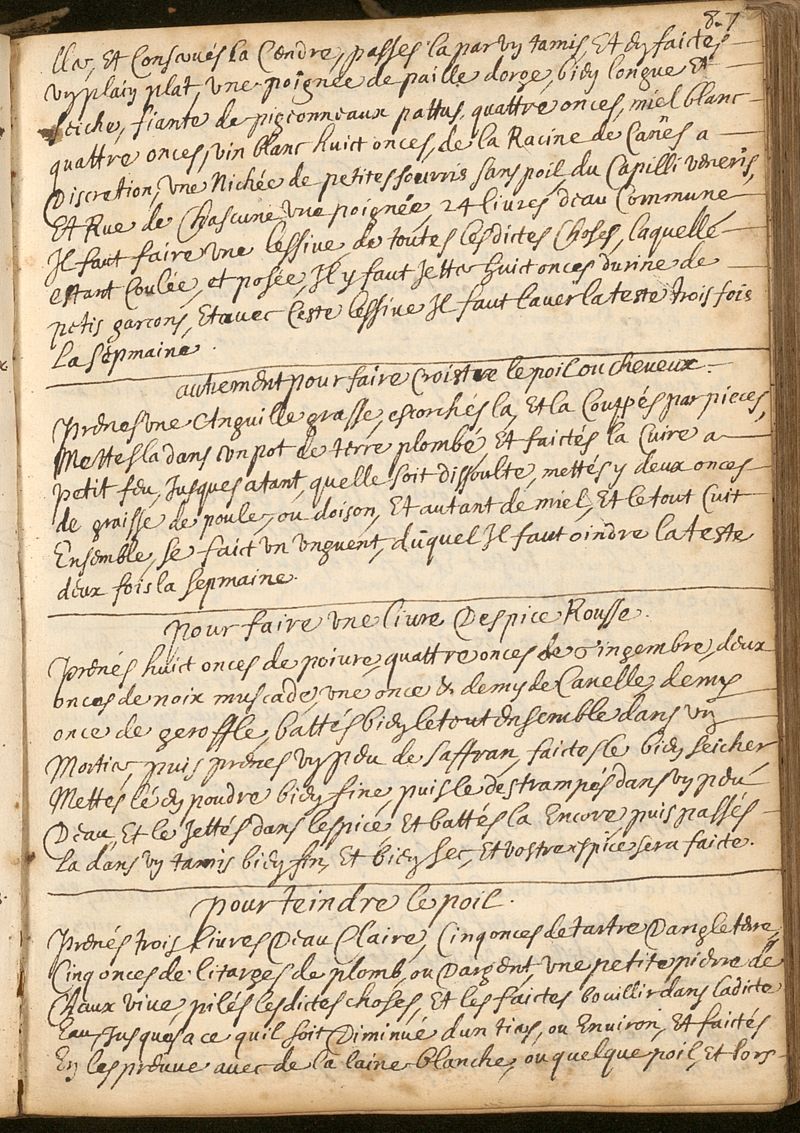 87
lla, Et Conservés la Cendre, passes la par vn tamis, Et en faictes
vn plain plat, vne poignée de paille dorge, bien longue Et
seiche, fiante de pigeonneaux pattus, quattre onces, miel blanc
quattre onces, vin blanc huict onces, de la Racine de Canes a
Discretion, vne Nichée de petites sourris sans poil, du Capilli veneris,
Et Rue de Chascune vne poignée, 24 livres deau Commune
Il faut faire vne lessive de toutes lesdictes Choses, laquelle
estant Coulée, et posée, Il y faut Jetter huict onces durine de
petis garcons, Et avec ceste lessive Il faut laver la teste trois fois
La sepmaine.
autrement pour faire Croistre le poil ou cheveux.
Prenes vne Anguille grasse, escorchés la, Et la Couppés par pieces,
Mettes la dans vn pot de terre plombé, Et faictés la Cuire a
petit feu, Jusques atant, quelle soit dissoulte, mettés y deux onces
de graisse de poule, ou doison, Et autant de miel, Et le tout Cuit
Ensemble, se faict vn vnguent, duquel Il faut oindre la teste
deux fois la sepmaine.
Pour faire vne livre Despice Rousse.
Prenés huict onces de poivre, quattre onces de Gingembre, deux
onces de noix muscade, vne once & demy de Canelle, demy
once de geroffle, battés bien le tout Ensemble dans vn
Mortier, puis prenes vn peu de saffran, faictes le bien seicher,
Mettés lé en poudre bien fine, puis le destrampés dans vn peu
Deau, Et le Jettés dans lespice Et battés la Encore puis passés
La dans vn tamis bien fin, Et bien sec, Et vostre espice sera faicte.
Pour teindre le poil.
Prenés trois livres Deau Claire, Cinq onces de tartre Dangleterre,
Cinq onces de litarges de plomb, ou Dargent, vne petite pierre de
Chaux vive, pilés lesdictes choses, Et les faictes bouillir dans ladicte
Eau, Jusques a ce quil soit Diminué dun tiers, ou Environ, Et faictés
En les preuve avec de la laine blanche, ou quelque poil, Et lors-